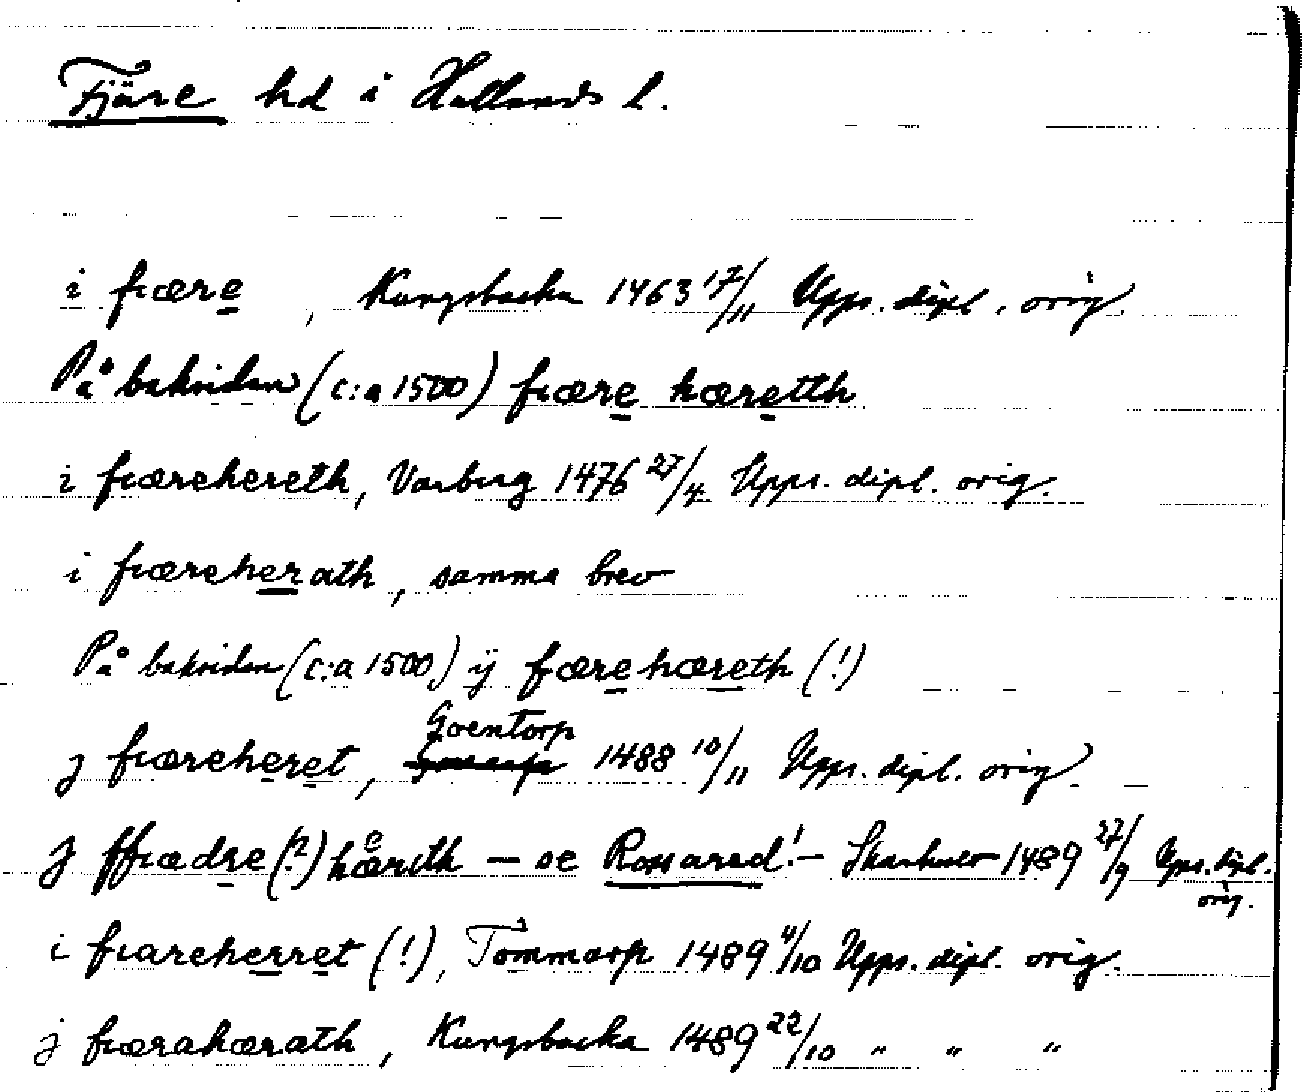 Fjäre hd i Hallands l.
i fiære, Kungsbacka 1463 17/11 Upps. dipl. orig.
På baksidan (c:a 1500) fiære hæretth
i fiærehereth, Varberg 1476 27/4 Upps. dipl. orig.
i fiæreherath, samma brev
På baksidan (c:a 1500) ij fiærehæreth (!)
j fiæreheret, Goentorp 1488 10/11 Upps. dipl. orig.
j ffiædre(?) håreth – se Rossared! – 1489 27/9 Upps. dipl. orig.
i fiareherret (!), Tommarp 1489 4/10 Upps. dipl. orig.
j fiærahærath, Kungsbacka 1489 22/10 " " "